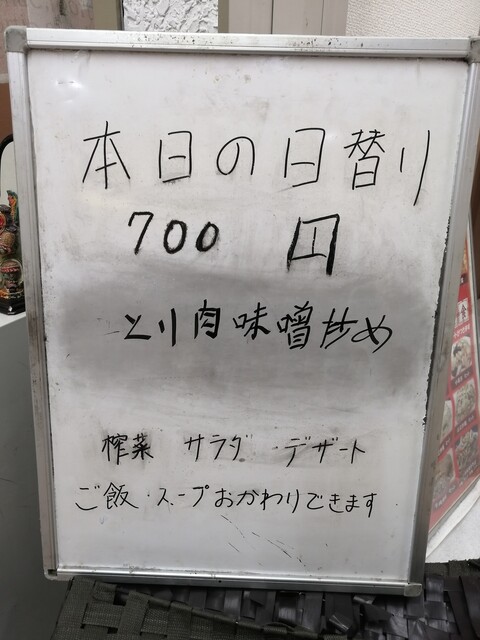 本日の日替り
700 円
とり肉味噌炒め
搾菜 サラダ デザート
ご飯・スープおかわりできます